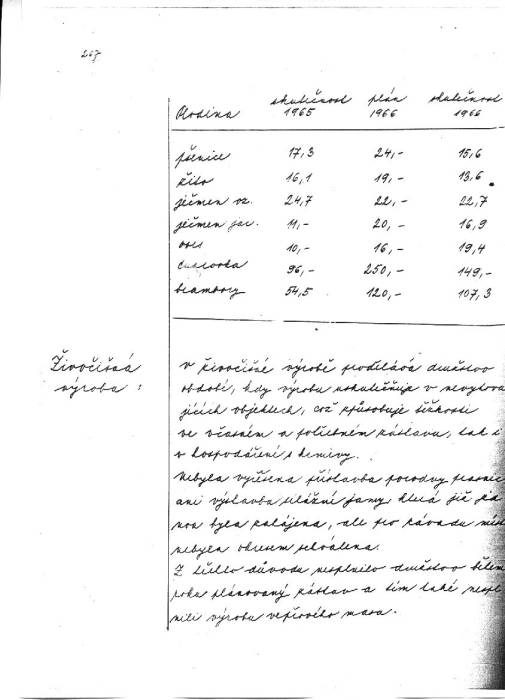 267
Plodina skutečnost 1965 plán 1966 skutečnost 1966
pšenice 17,3 24,- 15,6
žito 16,1 19,- 13,6
ječmen oz. 24,7 22,- 22,7
ječmen jar. 11,- 20,- 16,9
oves 10,- 16,- 19,4
cukrovka 96,- 250,- 149,-
brambory 54,5 120,- 107,3
Živočišná výroba :
V živočišné výrobě prodělává družstvo
období, kdy výrobu uskutečňuje v nevyhovu
jících objektech, což způsobuje těžkosti
ve včasném a potřebném zástavu, tak i
v hospodaření s krmivy.
Nebyla vyřešena přístavba porodny prasnic
ani výstavba silážní jamy, která již
byla zahájena, ale pro závadu
nebyla okresem schválena.
Z těchto důvodů nesplnilo družstvo během
roku plánovaný zástav a tím také nespl
nili výrobu vepřového masa.